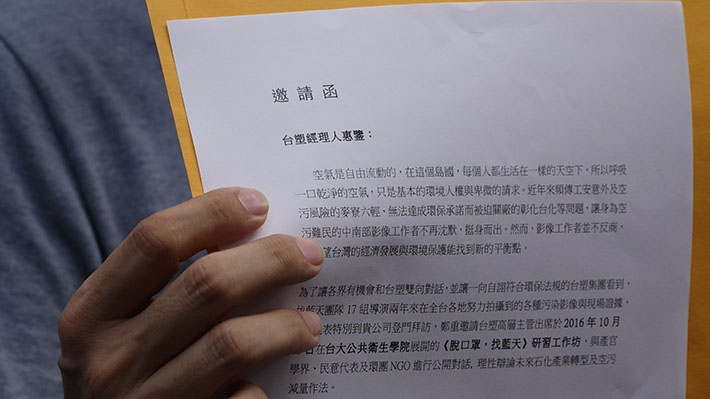 邀請函
台塑經理人惠鑒：
空氣是自由流動的，在這個島國，每個人都生活在一樣的天空下，所以呼吸
一口乾淨的空氣，只是基本的環境人權與卑微的請求。近年來頻傳工安意外及空
污風險的麥寮六輕、無法達成環保承諾而被迫關廠的彰化台化等問題，讓身為空
污難民的中南部影像工作者不再沈默，挺身而出。然而，影像工作者並不反商，
望台灣的經濟發展與環境保護能找到新的平衡點。
為了讓各界有機會和台塑雙向對話，並讓一向自詡符合環保法規的台塑集團看到，
找藍天團隊 17 組導演兩年來在全台各地努力拍攝到的各種污染影像與現場證據，
表特別到貴公司登門拜訪，鄭重邀請台塑高層主管出席於 2016 年 10 月
日在台大公共衛生學院展開的《脫口罩，找藍天》研習工作坊，與產官
學界、民意代表及環團 NGO 進行公開對話，理性辯論未來石化產業轉型及空污
減量作法。